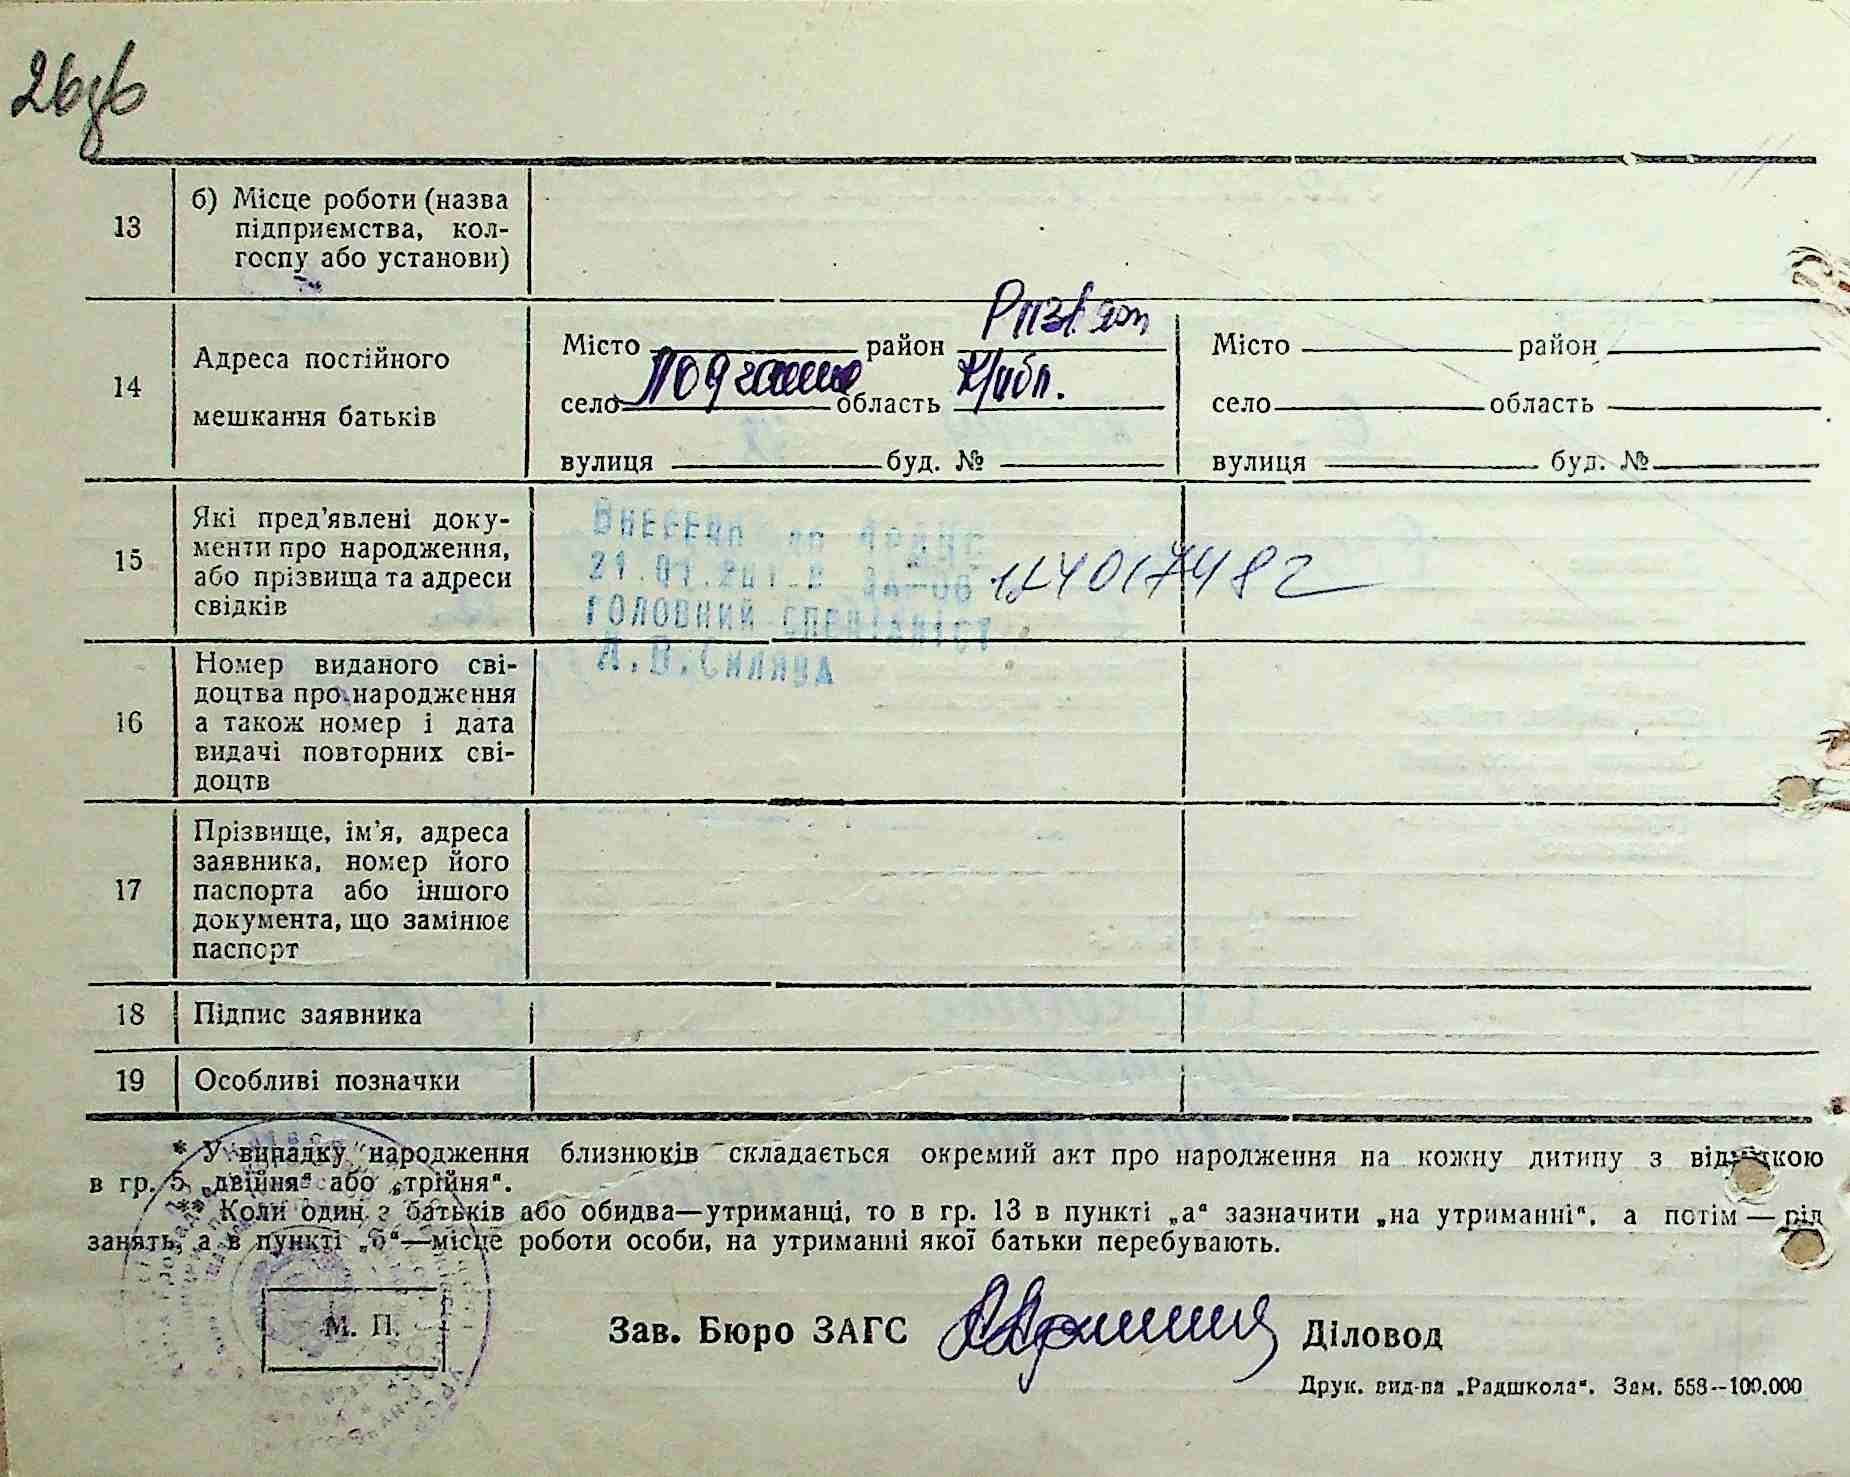 13
б) Місце роботи (назва
підприємства, кол-
госпу або установи)
14
Адреса постійного
мешкання батьків
Місто район
село область
вулиця буд. №
Місто район
село область
вулиця буд. №
15
Які пред'явлені доку-
менти про народження,
або прізвища та адреси
свідків
Внесени
21.01.201
ГОЛОВНИЙ СПЕЦІАЛІСТ
16
Номер виданого сві-
доцтва про народження
а також номер і дата
видачі повторних сві-
доцтв
17
Прізвище, ім'я, адреса
заявника, номер його
паспорта або іншого
документа, що замінює
паспорт
18
Підпис заявника
19
Особливі позначки
* У випадку народження близнюків складається окремий акт про народження на кожну дитину з відміткою
в гр. 5 „двійня“ або „трійня“.
** Коли один з батьків або обидва—утриманці, то в гр. 13 в пункті „а“ зазначити „на утриманні“, а потім — рід
занять, а в пункті „б“—місце роботи особи, на утриманні якої батьки перебувають.
М. П.
Зав. Бюро ЗАГС Діловод
Друк. вид-ва „Радшкола“. Зам. 558—100.000